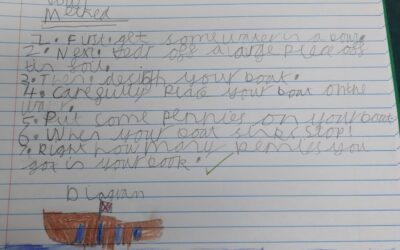 Method
1. First get some water in a bowl.
2. Next tear off a large piece off
tin foil.
3. Then design your boat.
4. Carefully place your boat on the
water.
5. Put some pennies on your boat
6. When your boat sinks stop!
7. Right how many pennies you
got in your book.
Diagram